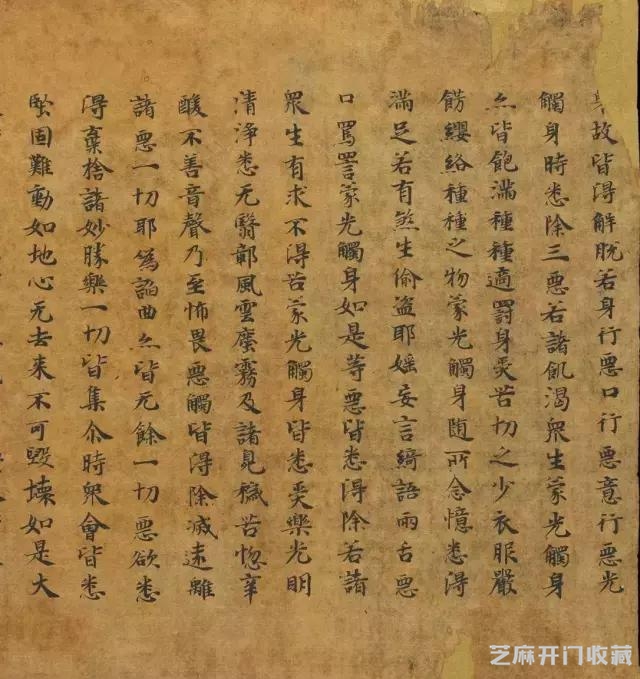 故皆得解脫若身行惡口行惡意行惡光
觸身時悉除三惡若諸飢渴衆生蒙光觸身
亦皆飽滿種種適罰身受苦切之少衣服嚴
餝纓絡種種之物蒙光觸身随所念憶悉得
滿足若有煞生偷盜耶婬妄言綺語兩舌惡
口罵詈蒙光觸身如是等惡皆悉得除若諸
衆生有求不得苦蒙光觸身皆悉受樂光明
清淨悉无翳鄣風雲塵霧及諸見穢苦惱辛
酸不善音聲乃至怖畏惡觸皆得除滅遠離
諸惡一切耶爲諂曲亦皆无餘一切惡欲悉
得棄捨諸妙勝樂一切皆集尒時衆會皆悉
堅固難動如地心无去来不可毀壞如是大
芝麻开门收藏